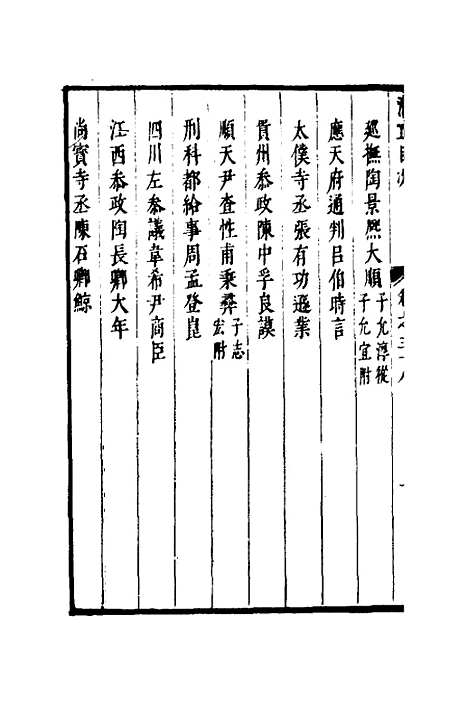 巡撫陶景熈大順子允淳從子允宜附
應天府通判吕伯時言
太僕寺丞張有功遜業
貴州叅政陳中孚良謨
順天尹查性甫秉彝子志宏附
刑科都給事周孟登崑
四川左叅議韋希尹商臣
江西叅政陶長卿大年
尚寶寺丞陳石卿鯨